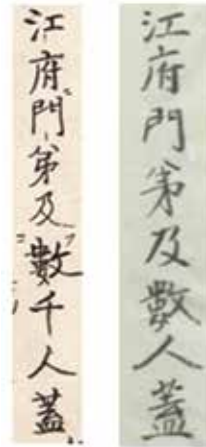 江府門第及數千人蓋
江府門第及數人蓋